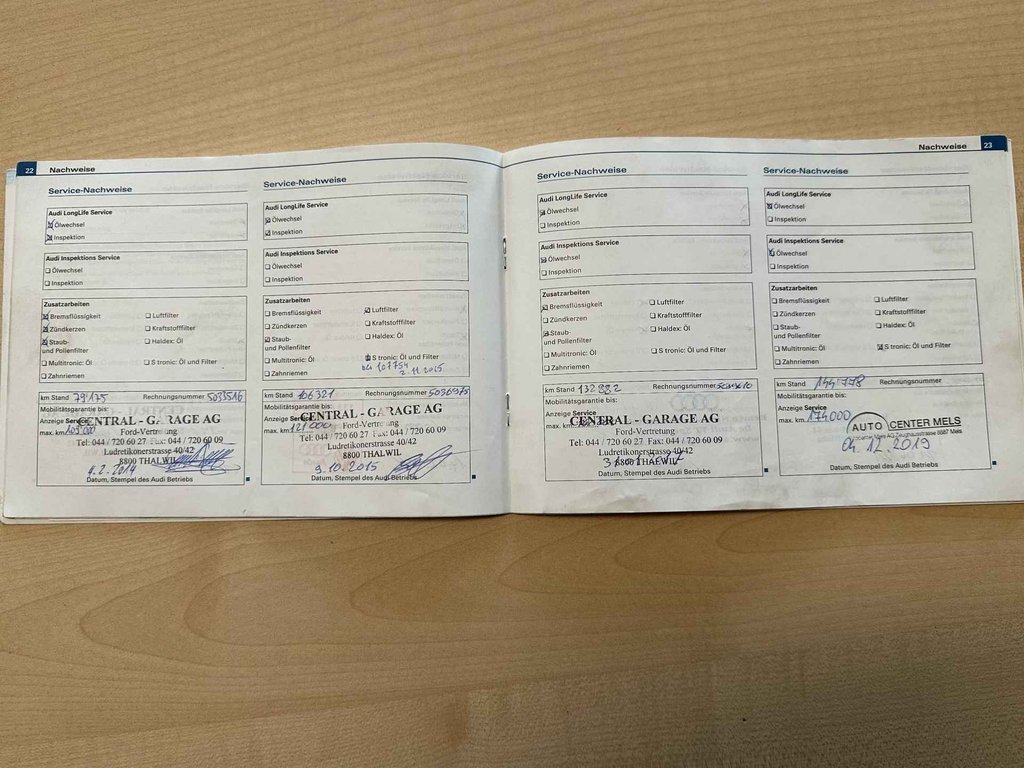 22 Nachweise
Service-Nachweise
Audi LongLife Service
Ölwechsel
Inspektion
Audi Inspektions Service
Ölwechsel
Inspektion
Zusatzarbeiten
Bremsflüssigkeit
Luftfilter
Zündkerzen
Kraftstofffilter
Staub-
und Pollenfilter
Haldex: Öl
Multitronic: Öl
S tronic: Öl und Filter
Zahnriemen
km Stand 79'175 Rechnungsnummer 5033516
Mobilitätsgarantie bis:
Anzeige Service
max. km 109'000
CENTRAL - GARAGE AG
Ford-Vertretung
Tel: 044 / 720 60 27 Fax: 044 / 720 60 09
Ludretikonerstrasse 40/42
8800 THALWIL
4.2.2014
Datum, Stempel des Audi Betriebs
Service-Nachweise
Audi LongLife Service
Ölwechsel
Inspektion
Audi Inspektions Service
Ölwechsel
Inspektion
Zusatzarbeiten
Bremsflüssigkeit
Luftfilter
Zündkerzen
Kraftstofffilter
Staub-
und Pollenfilter
Haldex: Öl
Multitronic: Öl
S tronic: Öl und Filter
bei 107754
2.11.2015
Zahnriemen
km Stand 106321 Rechnungsnummer 5036975
Mobilitätsgarantie bis:
Anzeige Service
max. km 121'000
CENTRAL - GARAGE AG
Ford-Vertretung
Tel: 044 / 720 60 27 Fax: 044 / 720 60 09
Ludretikonerstrasse 40/42
8800 THALWIL
9.10.2015
Datum, Stempel des Audi Betriebs
Nachweise 23
Service-Nachweise
Audi LongLife Service
Ölwechsel
Inspektion
Audi Inspektions Service
Ölwechsel
Inspektion
Zusatzarbeiten
Bremsflüssigkeit
Luftfilter
Zündkerzen
Kraftstofffilter
Staub-
und Pollenfilter
Haldex: Öl
Multitronic: Öl
S tronic: Öl und Filter
Zahnriemen
km Stand 132982 Rechnungsnummer
Mobilitätsgarantie bis:
Anzeige Service
max. km
CENTRAL - GARAGE AG
Ford-Vertretung
Tel: 044 / 720 60 27 Fax: 044 / 720 60 09
Ludretikonerstrasse 40/42
8800 THALWIL
Datum, Stempel des Audi Betriebs
Service-Nachweise
Audi LongLife Service
Ölwechsel
Inspektion
Audi Inspektions Service
Ölwechsel
Inspektion
Zusatzarbeiten
Bremsflüssigkeit
Luftfilter
Zündkerzen
Kraftstofffilter
Staub-
und Pollenfilter
Haldex: Öl
Multitronic: Öl
S tronic: Öl und Filter
Zahnriemen
km Stand 144'778 Rechnungsnummer
Mobilitätsgarantie bis:
Anzeige Service
max. km 174000
AUTO CENTER MELS
Autocenter Mels AG Zeughausstrasse 8887 Mels
04.12.2019
Datum, Stempel des Audi Betriebs